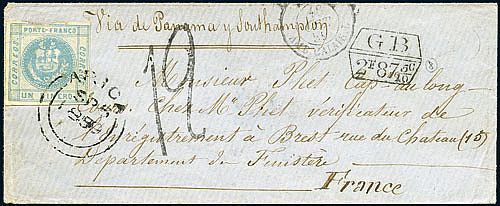 Via de Panama y Southampton
PORTE FRANCO
CORREOS
UN DINERO
ARICA
GB
2F87 5c/10
12
Monsieur Phet Cap. au long-
Chez Mr Phet vérificateur de
l'enregistrement à Brest rue du Chateau (15)
Departement du Finistère
France